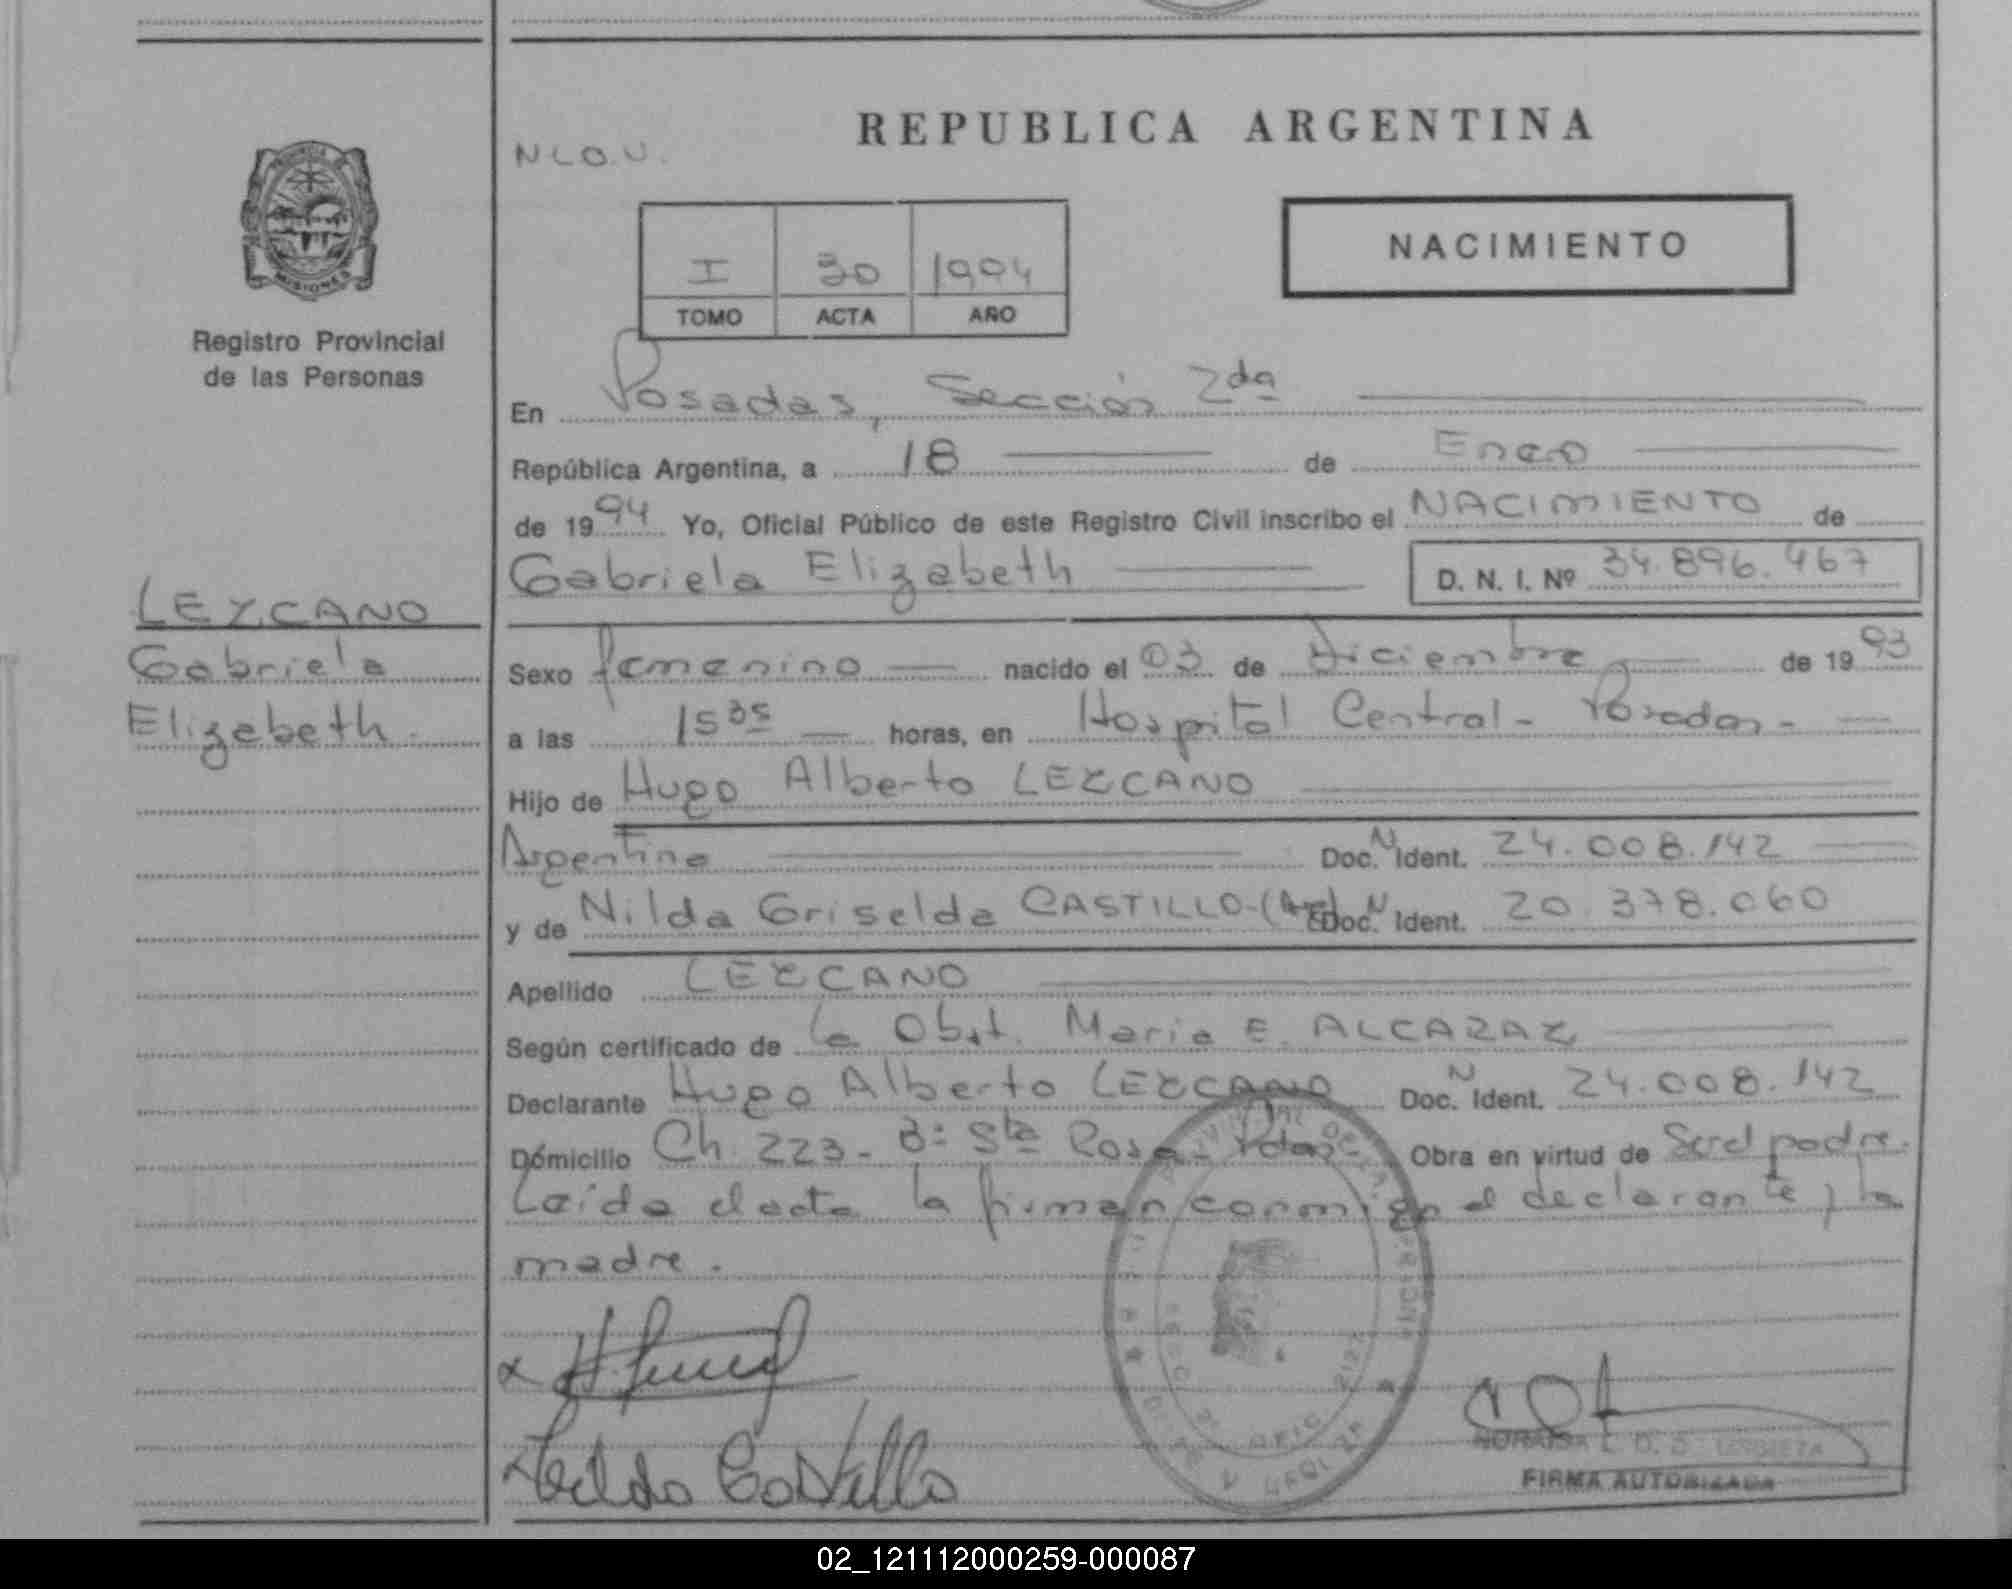 REPUBLICA ARGENTINA
N L O. U.
PROVINCIA DE
MISIONES
Registro Provincial
de las Personas
NACIMIENTO
I 30 1994
TOMO ACTA AÑO
En Posadas, Sección 2da
República Argentina, a 18 de Enero
de 1994 Yo, Oficial Público de este Registro Civil inscribo el NACIMIENTO de
Gabriela Elizabeth D. N. I. Nº 34.896.467
LEZCANO
Gabriela
Elizabeth
Sexo femenino nacido el 03 de Diciembre de 1993
a las 15 35 horas, en Hospital Central - Posadas -
Hijo de Hugo Alberto LEZCANO
Argentino Doc. N Ident. 24.008.142
y de Nilda Griselda CASTILLO-(Arg) Doc. N Ident. 20.378.060
Apellido LEZCANO
Según certificado de la Obst. Maria E. ALCARAZ
Declarante Hugo Alberto LEZCANO Doc. N Ident. 24.008.142
Domicilio Ch. 223 - Bº Sta Rosa - Pdas - Obra en virtud de Ser el padre.
Leída el acta la firman conmigo el declarante y la
madre.
Nilda Castillo
FIRMA AUTORIZADA
02_121112000259-000087